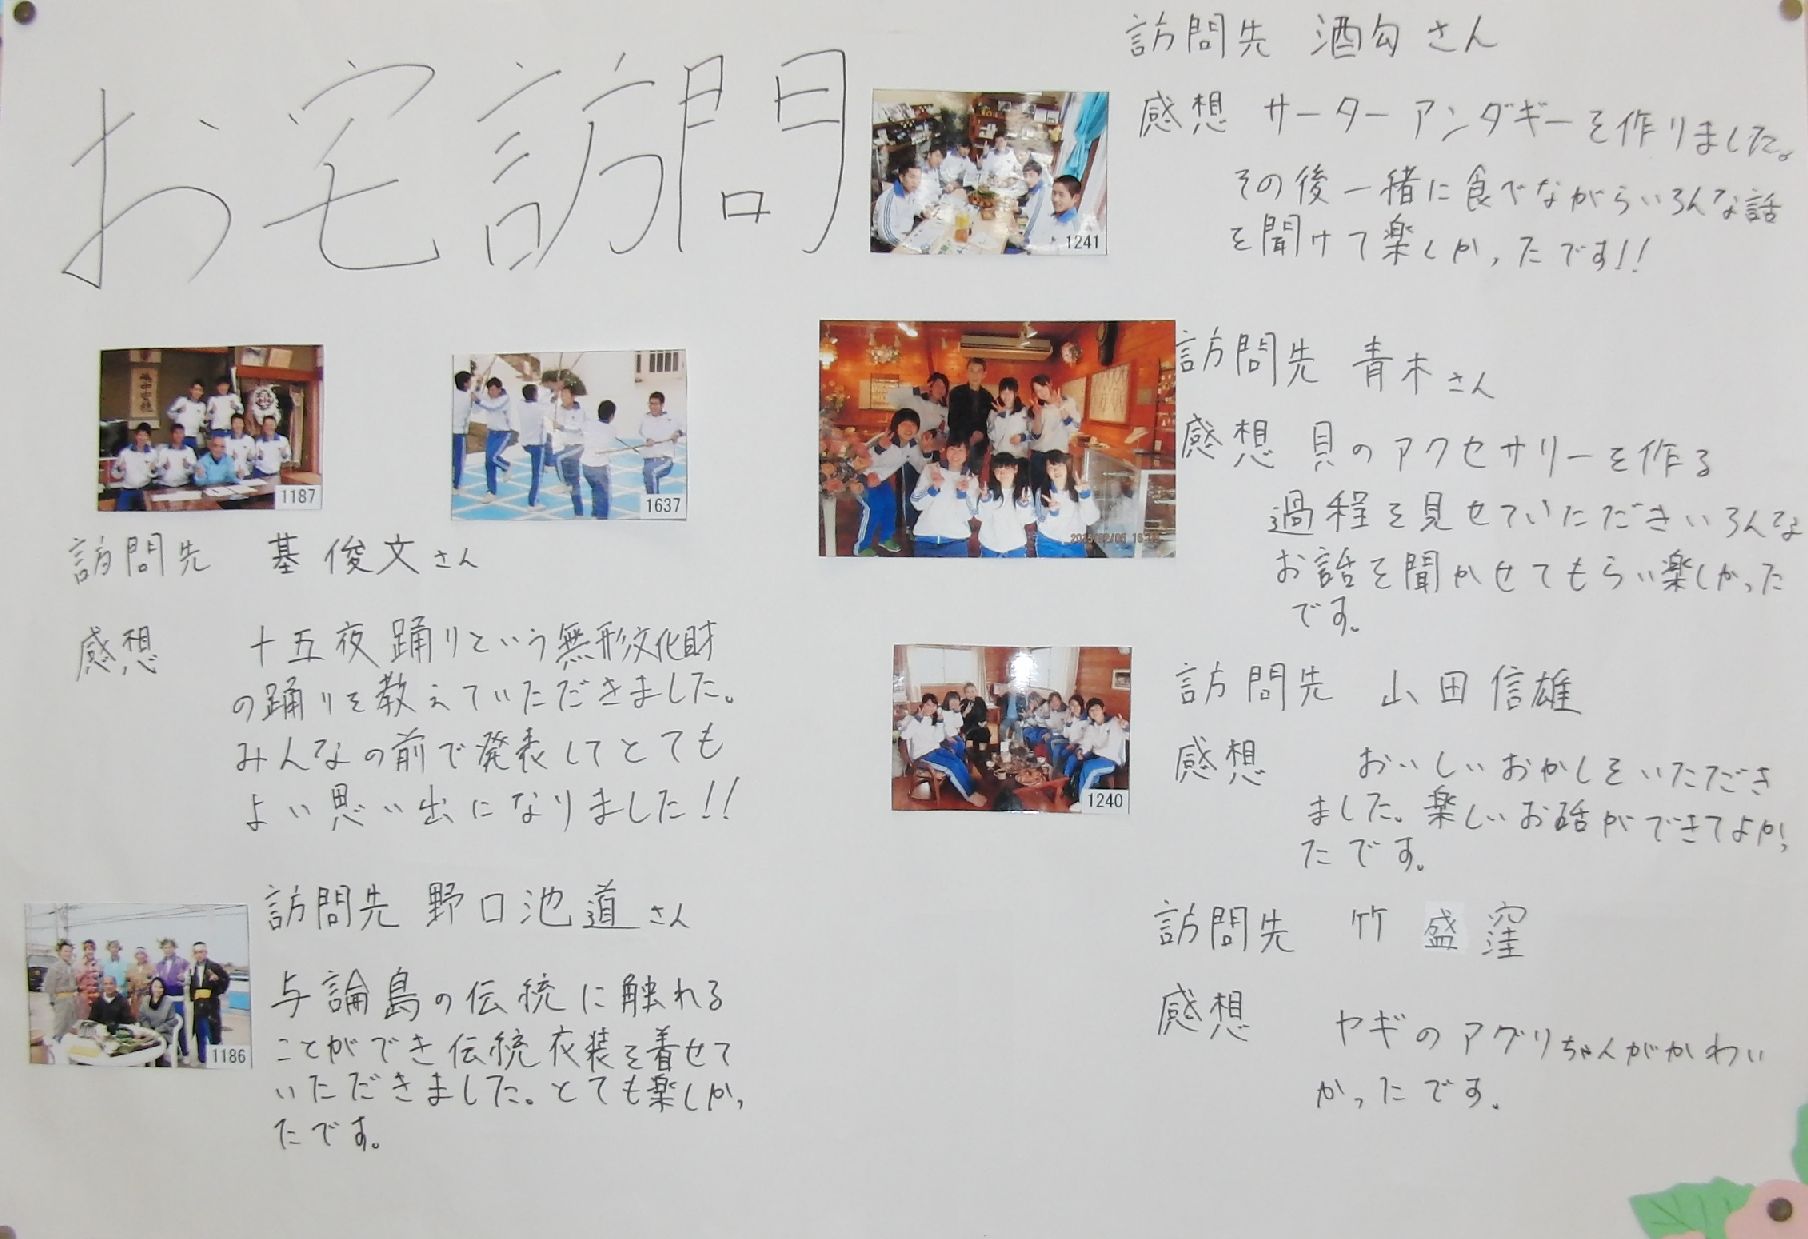 お宅訪問
訪問先 酒匂さん
感想 サーターアンダギーを作りました。
その後一緒に食べながらいろんな話
を聞けて楽しかったです!!
1241
1187
1637
訪問先 基 俊文さん
感想 十五夜踊りという無形文化財
の踊りを教えていただきました。
みんなの前で発表してとても
よい思い出になりました!!
訪問先 青木さん
感想 貝のアクセサリーを作る
過程を見せていただきいろんな
お話を聞かせてもらい楽しかった
です。
訪問先 山田信雄
感想 おいしいおかしをいただき
ました。楽しいお話ができてよかっ
たです。
1240
訪問先 野口池道さん
与論島の伝統に触れる
ことができ伝統衣装を着せて
いただきました。とても楽しかっ
たです。
1186
訪問先 竹 盛 窪
感想 ヤギのアグリちゃんがかわい
かったです。